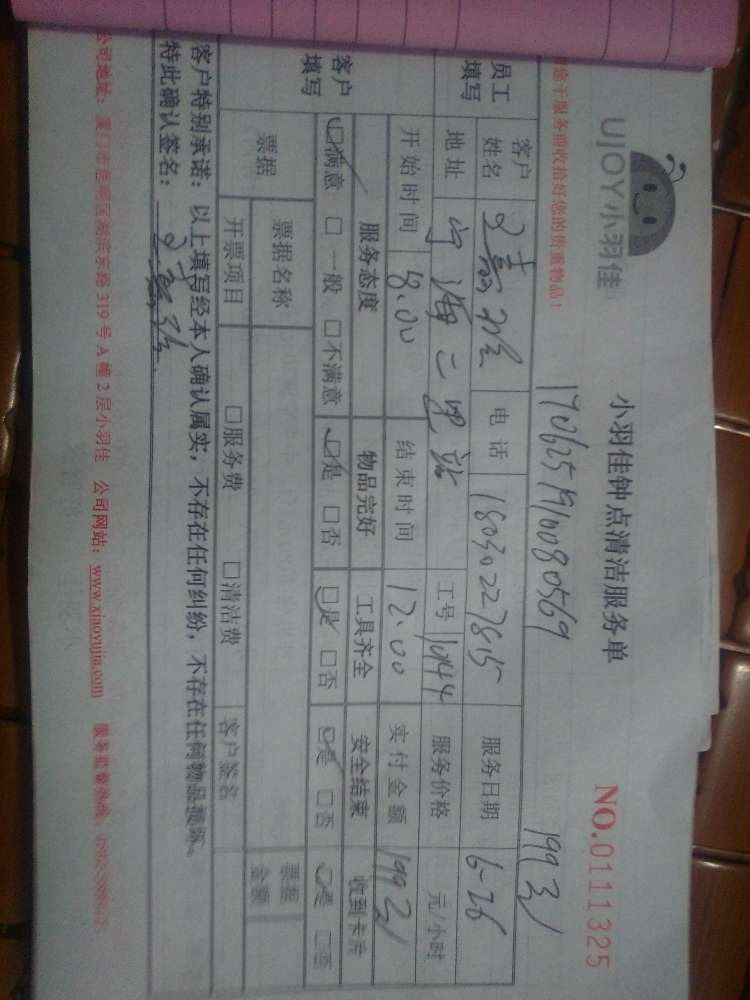 UJOY小羽佳
小羽佳钟点清洁服务单
NO.0111325
1706251910080569
199元
您于服务前收拾好您的贵重物品！
员工填写
客户姓名 电话 18030227815 服务日期 6-26
地址 宁海二里站 工号 10144 服务价格 元/小时
开始时间 8.00 结束时间 12.00 实付金额 199元
客户填写
服务态度 物品完好 工具齐全 安全结束 收到卡片
☑满意 □一般 □不满意 ☑是 □否 ☑是 □否 ☑是 □否 ☑是 □否
票据 票据名称 票据金额
开票项目 □服务费 □清洁费 客户签名
客户特别承诺：以上填写经本人确认属实，不存在任何纠纷，不存在任何物品损坏。
特此确认签名：
公司地址：厦门市思明区湖滨东路 319 号 A 幢 2 层小羽佳 公司网站：www.xiaoyujia.com 服务监督热线